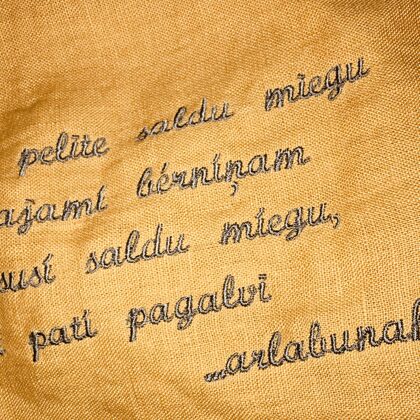 pelīte saldu miegu
ajamī bērniņam
susi saldu miegu,
pati pagalvī
...arlabunak